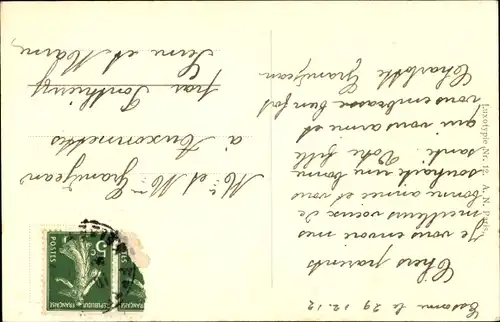 Essonne le 29.12.12
Chers parents
Je vous envoie mes
meilleurs vœux de
bonne année et vous
souhaite une bonne
santé. Votre fille
qui vous aime et
vous embrasse bien fort
Charlotte Grandjean
Mr et Mme Grandjean
à Auxonnettes
par Ponthierry
Seine et Marne
Luxotypie Nr. 12. A. N. Paris.
5c
POSTES
REPUBLIQUE FRANÇAISE